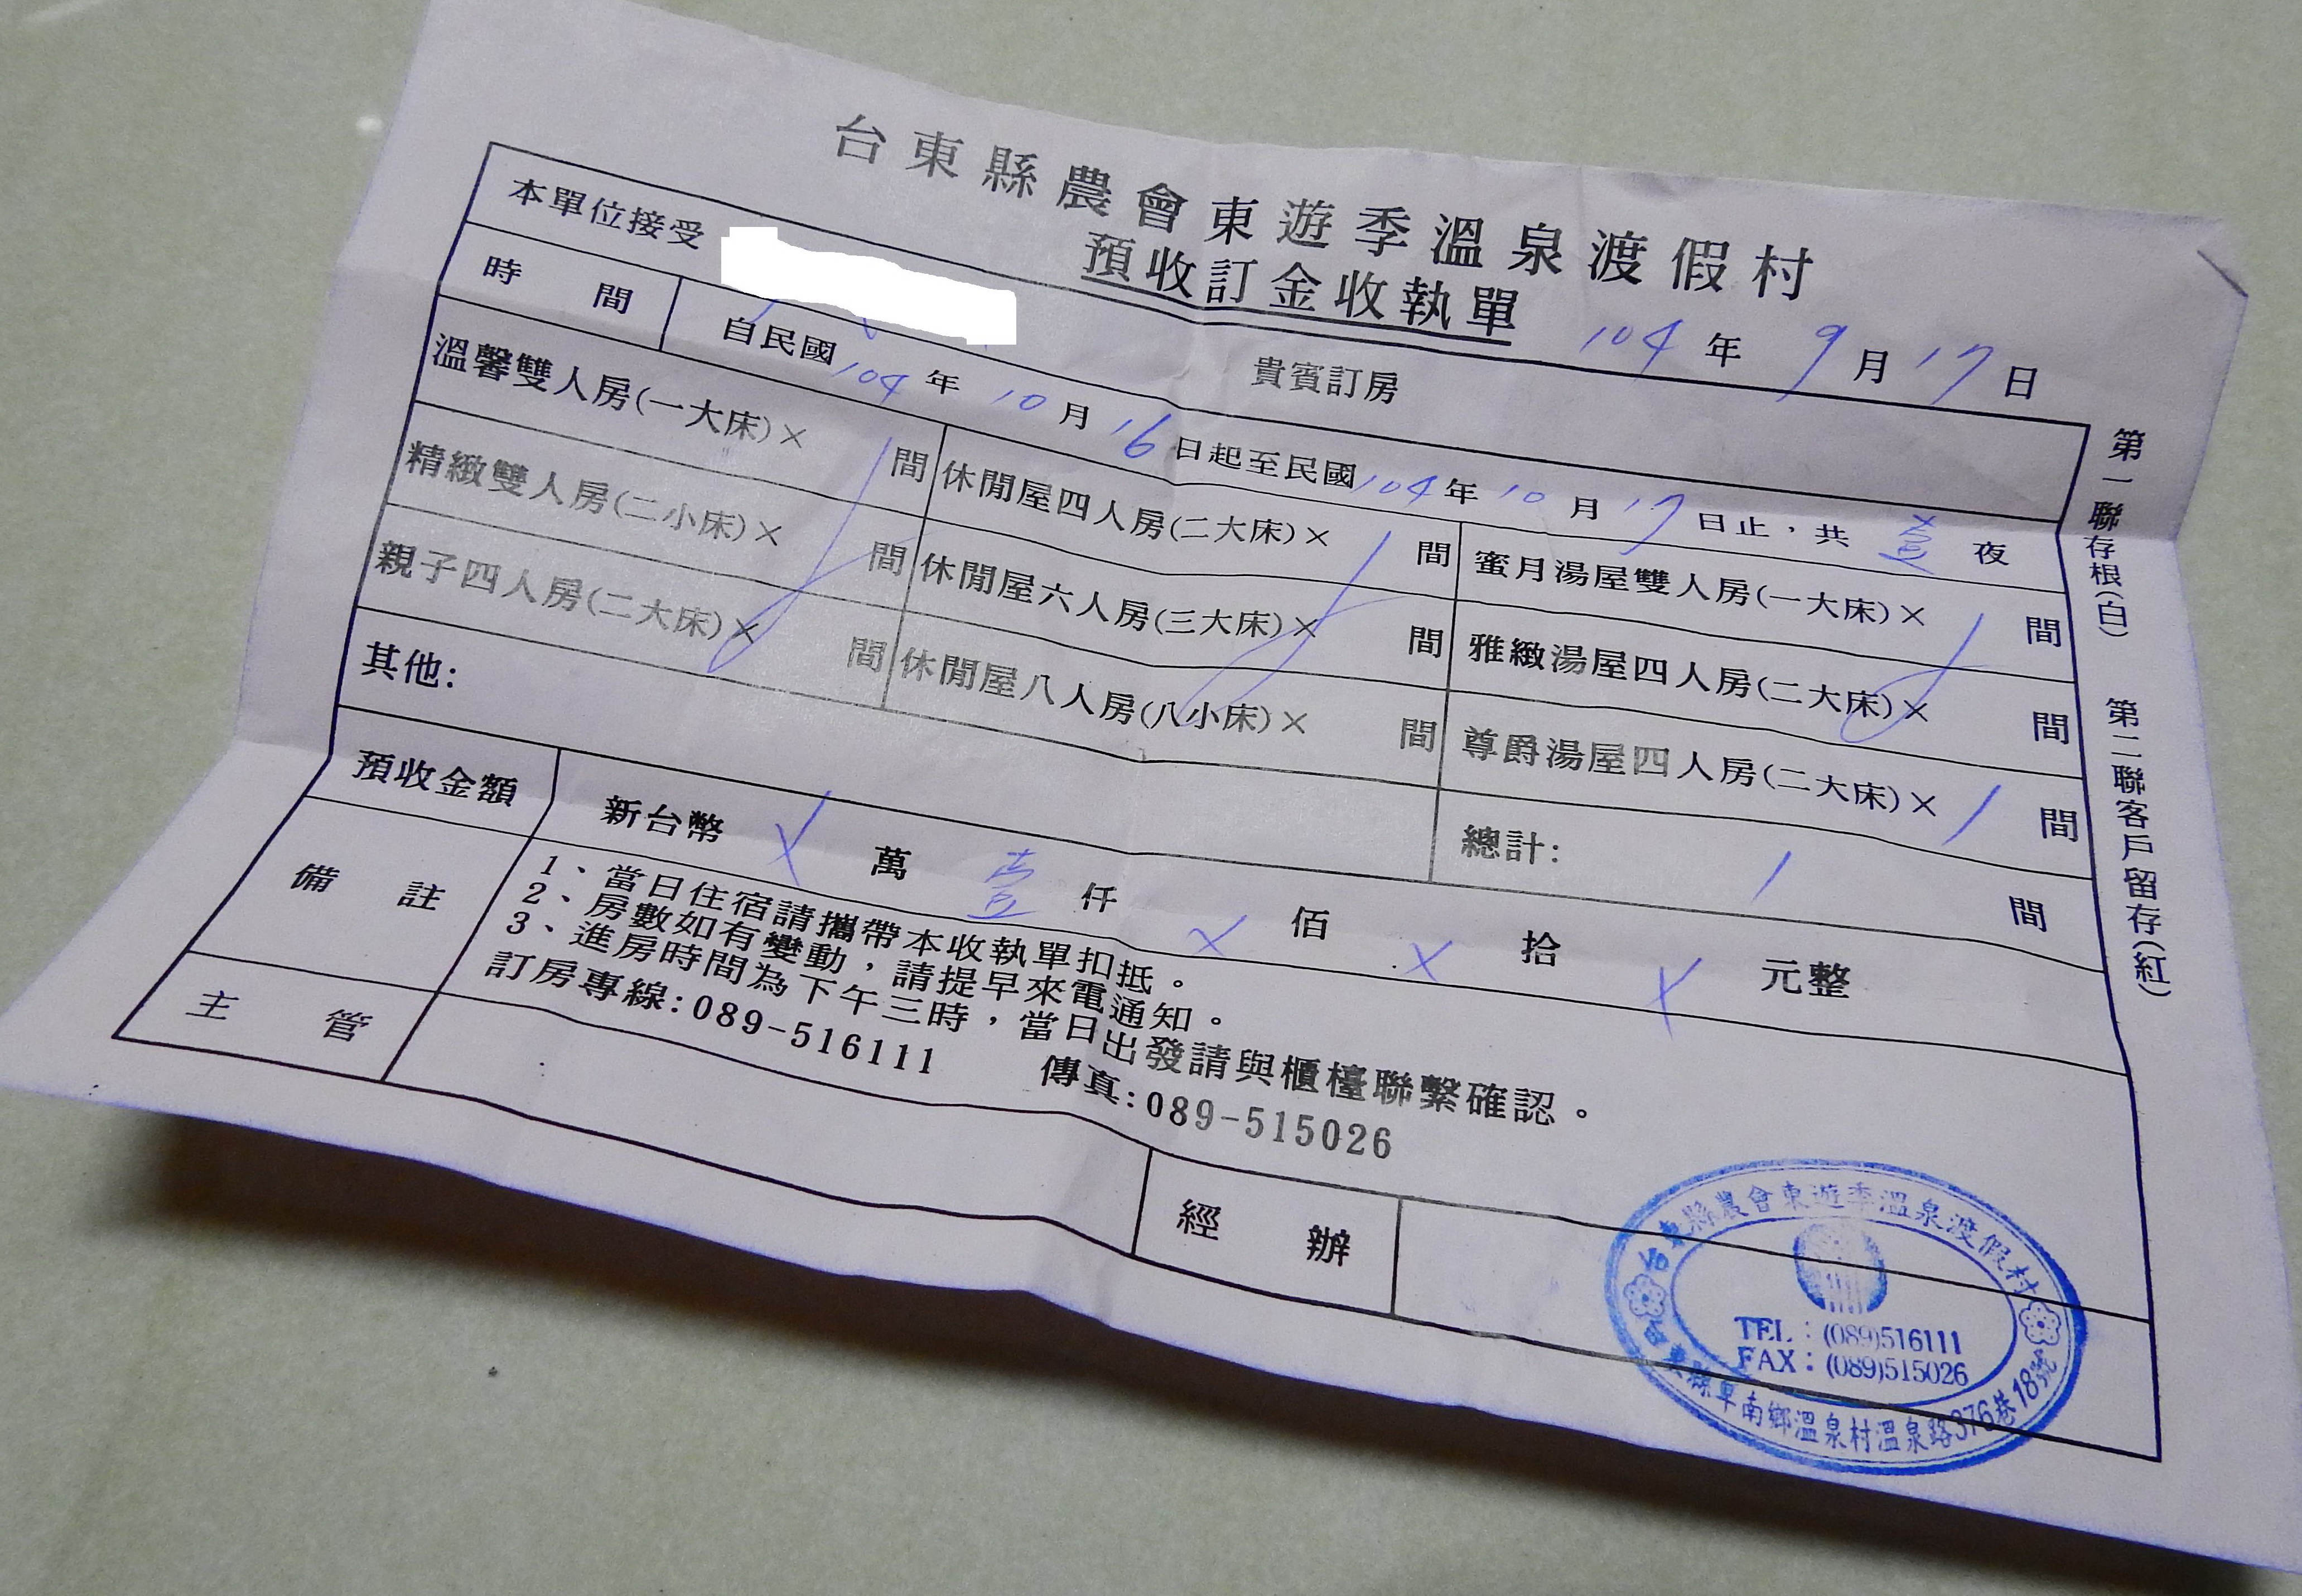 台東縣農會東遊季溫泉渡假村
預收訂金收執單
104年9月17日
本單位接受 貴賓訂房
時間 自民國104年10月16日起至民國104年10月17日止，共壹夜
溫馨雙人房(一大床)× 間 休閒屋四人房(二大床)× 間 蜜月湯屋雙人房(一大床)× 間
精緻雙人房(二小床)× 間 休閒屋六人房(三大床)× 間 雅緻湯屋四人房(二大床)× 間
親子四人房(二大床)× 間 休閒屋八人房(八小床)× 間 尊爵湯屋四人房(二大床)×1間
其他: 總計: 1 間
預收金額 新台幣 X 萬 壹 仟 X 佰 X 拾 X 元整
備註
1、當日住宿請攜帶本收執單扣抵。
2、房數如有變動，請提早來電通知。
3、進房時間為下午三時，當日出發請與櫃檯聯繫確認。
訂房專線:089-516111 傳真:089-515026
主管 經辦
第一聯存根(白) 第二聯客戶留存(紅)
台東縣農會東遊季溫泉渡假村
TEL：(089)516111
FAX：(089)515026
台東縣卑南鄉溫泉村溫泉路376巷18號